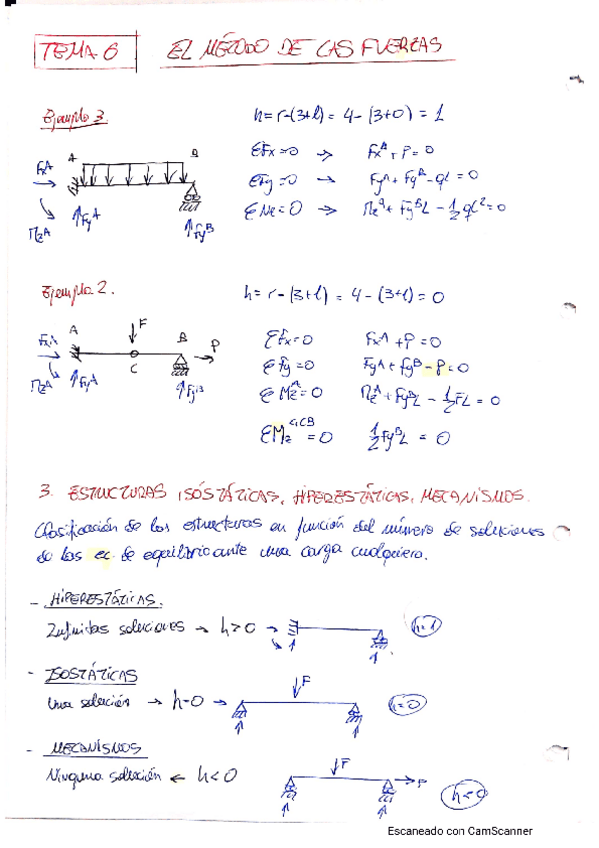 TEMA 6 EL MÉTODO DE LAS FUERZAS
Ejemplo 3.
h = r-(3+l) = 4-(3+0) = 1
ΣFx=0 → FxA + P = 0
ΣFy=0 → FyA + FyB - qL = 0
ΣMz=0 → MzA + FyBL - 1/2 qL² = 0
A B
FxA
MzA FyA FyB
Ejemplo 2.
h = r-(3+l) = 4-(3+1) = 0
A F B P
C
FxA
MzA FyA FyB
ΣFx=0 FxA + P = 0
ΣFy=0 FyA + FyB - P = 0
ΣMzA=0 MzA + FyBL - 1/2 FL = 0
ΣMzCB = 0 1/2 FyBL = 0
3. ESTRUCTURAS ISÓSTÁTICAS, HIPERESTÁTICAS, MECANISMOS.
Clasificación de las estructuras en función del número de soluciones
de las ec. de equilibrio ante una carga cualquiera.
- HIPERESTÁTICAS.
Infinitas soluciones → h>0 → h=1
- ISOSTÁTICAS
Una solución → h=0 → F h=0
- MECANISMOS
Ninguna solución ← h<0 F P h<0
Escaneado con CamScanner